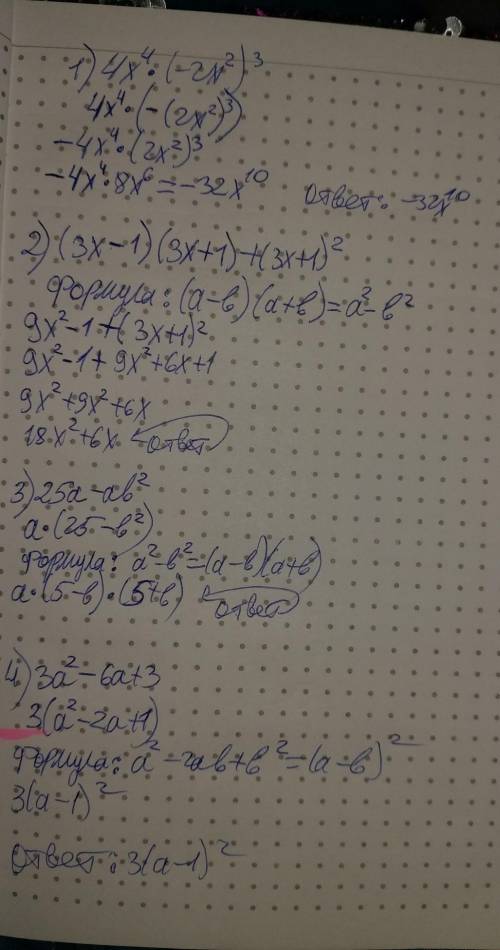 1) 4x⁴·(-2x²)³
4x⁴·(-(2x²)³)
-4x⁴·(2x²)³
-4x⁴·8x⁶=-32x¹⁰ Ответ: -32x¹⁰
2) (3x-1)(3x+1)+(3x+1)²
Формула: (a-b)·(a+b)=a²-b²
9x²-1+(3x+1)²
9x²-1+9x²+6x+1
9x²+9x²+6x
18x²+6x ответ
3) 25a-ab²
a·(25-b²)
Формула: a²-b²=(a-b)(a+b)
a·(5-b)·(5+b) ответ
4) 3a²-6a+3
3(a²-2a+1)
Формула: a²-2ab+b²=(a-b)²
3(a-1)²
Ответ: 3(a-1)²